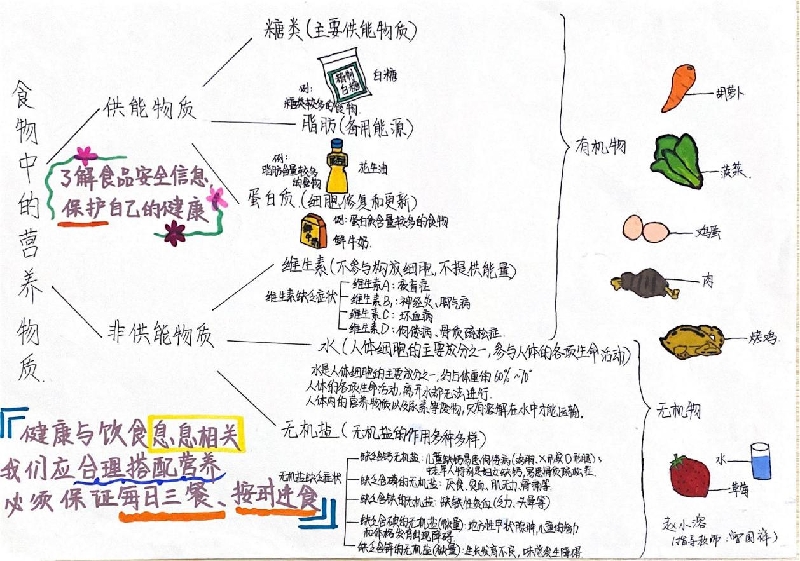 食物中的营养物质
供能物质
糖类(主要供能物质)
白糖
例:
糖类较多的食物
脂肪(备用能源)
例:
脂肪含量较多的食物
花生油
蛋白质(细胞修复和更新)
例:蛋白质含量较多的食物
鲜牛奶
鲜牛奶
了解食品安全信息
保护自己的健康
非供能物质
维生素(不参与构成细胞,不提供能量)
维生素缺乏症状
维生素A:夜盲症
维生素B1:神经炎、脚气病
维生素C:坏血病
维生素D:佝偻病、骨质疏松症
水(人体细胞的主要成分之一,参与人体的各项生命活动)
水是人体细胞的主要成分之一,约占体重的60%~70%
人体的各项生命活动,离开水都无法进行.
人体内的营养物质以及尿素等废物,只有溶解在水中才能运输.
无机盐(无机盐的作用多种多样)
无机盐缺乏症状
缺乏含钙的无机盐:儿童缺钙易患佝偻病
缺乏含磷的无机盐:厌食、贫血、肌无力、骨痛等
缺乏含铁的无机盐:缺铁性贫血(乏力、头晕等)
缺乏含碘的无机盐(微量):地方性甲状腺肿,儿童的智力和体格发育出现障碍
缺乏含锌的无机盐(微量):生长发育不良,味觉发生障碍
有机物
胡萝卜
菠菜
鸡蛋
肉
烧鸡
无机物
水
草莓
健康与饮食息息相关
我们应合理搭配营养
必须保证每日三餐、按时进食
赵小溶
(指导教师:曾国祥)